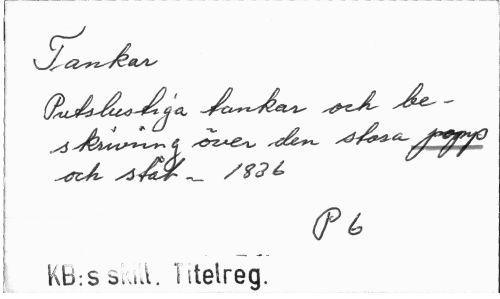 Tankar
Putslustiga tankar och be-
skrivning över den stora popp
och ståt - 1836
P 6
KB:s skill. Titelreg.